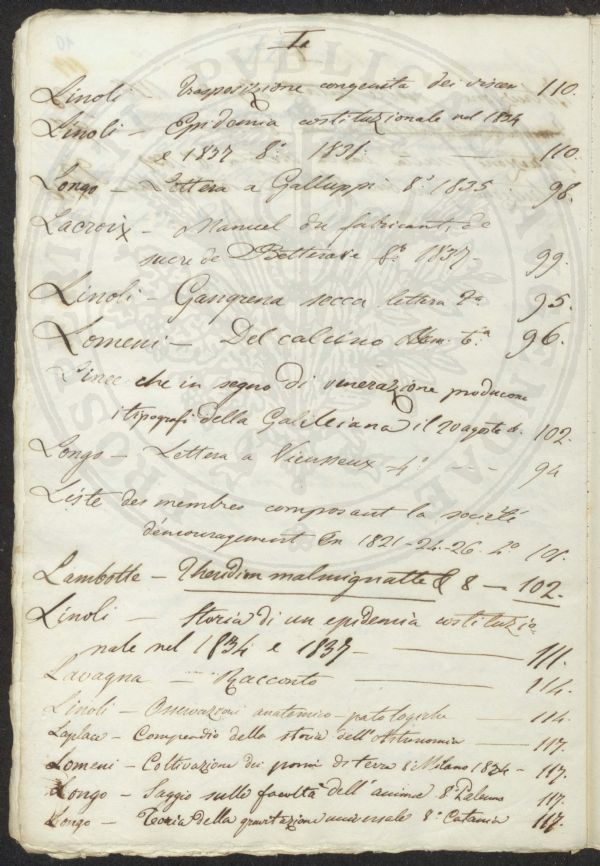 L
Linoli – Trasposizione congenita dei visceri 110.
Linoli – Epidemia costituzionale nel 1834
e 1837 8.° 1831. — 110.
Longo – Lettera a Galluppi 8.° 1835 98.
Lacroix – Manuel du fabricant de
sucre de Betterave 8.° 1837 – 99.
Linoli – Gangrena secca lettera 2ª 95.
Lomeni – Del calcino Mem. 6.ª 96.
Linee che in segno di venerazione producono
i tipografi della Galileiana il 20 agosto 102.
Longo – Lettera a Vieusseux 4.° - - - 94
Liste des membres composant la société
d'encouragement En 1821-24-26. 4.° 101.
Lambotte – Theridion malmignatte 8 – 102.
Linoli – Storia di un epidemia costituzio
nale nel 1834 e 1837 – 111.
Lavagna – Racconto – 114.
Linoli – Osservazioni anatomico-patologiche – 114.
Laplace – Compendio della storia dell'Astronomia – 117.
Lomeni – Coltivazione dei pomi di terra Milano 1834 – 117.
Longo – Saggio sulle facoltà dell'anima 8.° Palermo 117.
Longo – Teoria della gravitazione universale 8.° Catania 117.